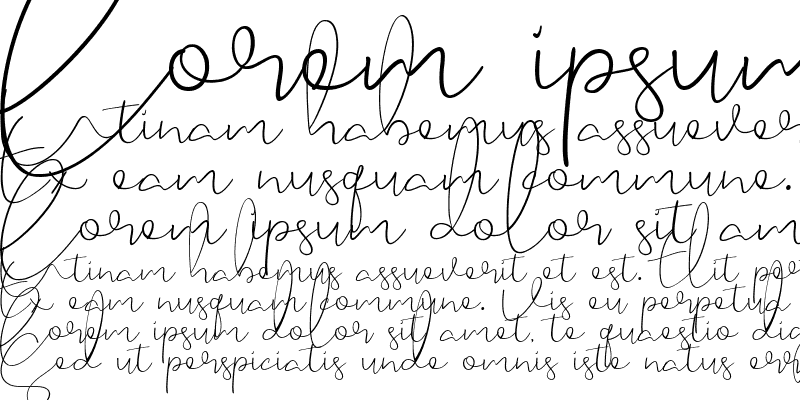 Lorem ipsum
Etinam habemus assuever
Ex eam nusquam commune.
Lorem ipsum dolor sit am
Etinam habemus assueverit et est. Elit per
Ex eam nusquam commune. Vis eu perpetua
Lorem ipsum dolor sit amet, te quaestio dic
Sed ut perspiciatis unde omnis iste natus err